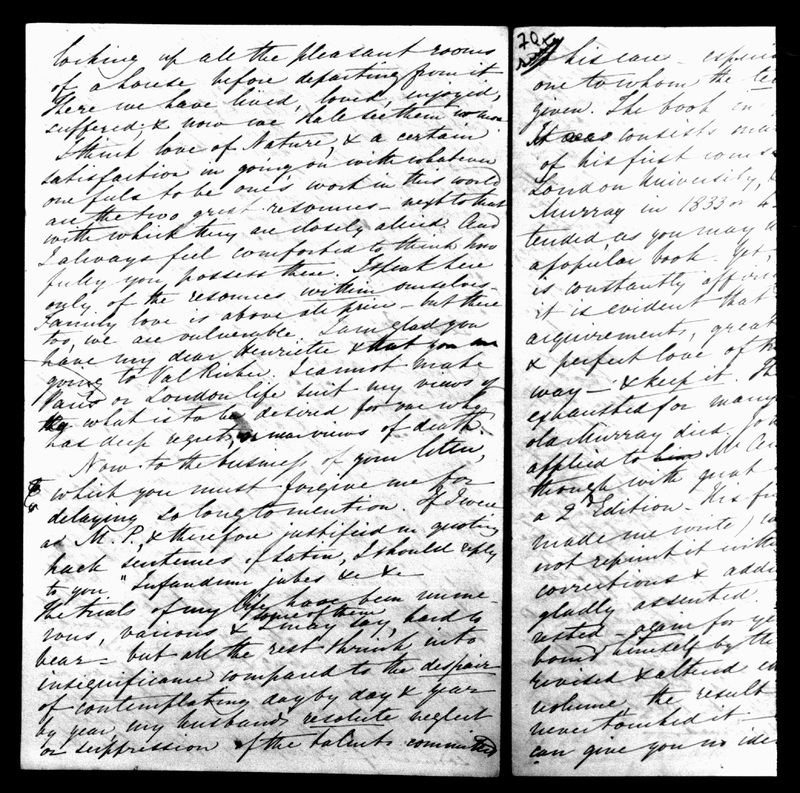 locking up all the pleasant rooms
of a house before departing from it
Here we have lived, loved, enjoyed,
suffered & now we shall see them no more
I think love of Nature, & a certain
satisfaction in going on with whatever
one feels to be one's work in this world
are the two great resources - next to that
with which they are closely allied. And
I always feel comforted to think how
fully you possess these. I speak here
only of the resources within ourselves.
Family love is above all price - but there
too, we are vulnerable. I am glad you
have my dear Henriette & that you are
going to Val Richer. I cannot make
Paris or London life suit my views of
what is to be desired for one who
has deep regrets or near views of death.
Now to the business of your letter,
which you must forgive me for
delaying so long to mention. If I were
an M.P., & therefore justified in quoting
hack sentences of Latin, I should reply
to you "Infandum jubes &c &c
The trials of my life have been nume-
rous, various & some of them I may say, hard to
bear - but all the rest shrink into
insignificance compared to the despair
of contemplating day by day & year
by year, my husband's resolute neglect
or suppression of the talents committed
to his care - especia
one to whom the
given. The book in
It consists
of his first
London University, &
Murray in 1833 or 4
tended, as you may
a popular book. Yet,
is constantly
it is evident that
acquirements, great
& perfect love of
way - & keep it. Th
exhausted for many
old Murray died,
applied to Mr Au
though with great
a 2d Edition - His
made me write)
not reprint it with
corrections & addi
gladly assented.
rested again for ye
bound himself by the
revised & altered
volume the result
never touched it -
can give you no ide